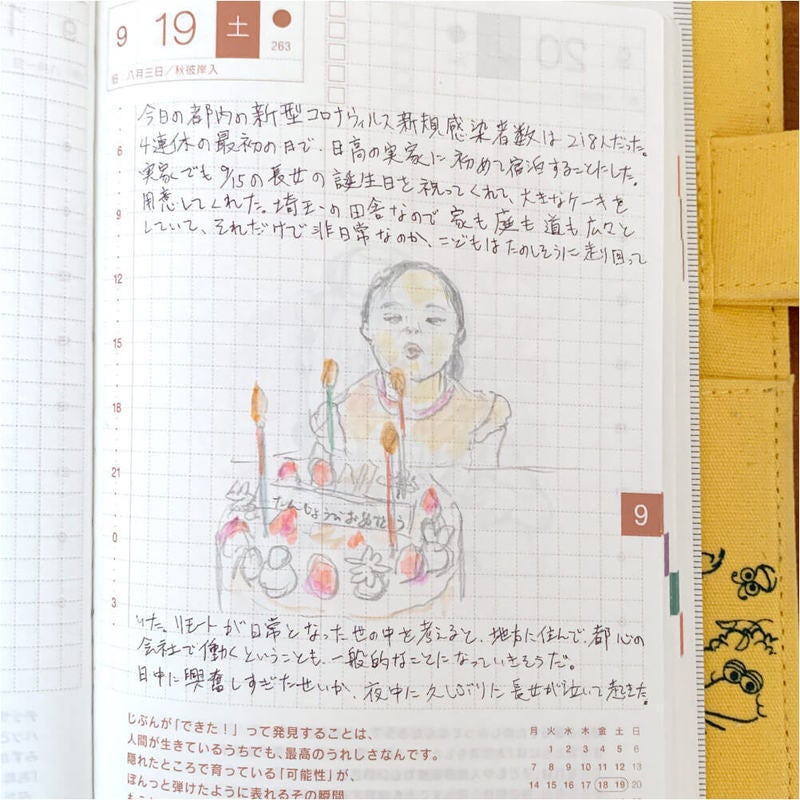 9 19 土
263
旧 八月三日／秋彼岸入
今日の都内の新型コロナウィルス新規感染者数は218人だった。
4連休の最初の日で、日高の実家に初めて宿泊することにした。
実家でも9/15の長女の誕生日を祝ってくれて、大きなケーキを
用意してくれた。埼玉の田舎なので家も庭も道も広々と
していて、それだけで非日常なのか、こどもはたのしそうに走り回って
6
9
12
15
18
21
0
3
たんじょうびおめでとう
9
いた。リモートが日常となった世の中を考えると、地方に住んで、都心の
会社で働くということも、一般的なことになっていきそうだ。
日中に興奮しすぎたせいか、夜中に久しぶりに長女が泣いて起きた。
じぶんが「できた！」って発見することは、
人間が生きているうちでも、最高のうれしさなんです。
隠れたところで育っている「可能性」が、
ぽんっと弾けたように表れるその瞬間
月 火 水 木 金 土 日
1 2 3 4 5 6
7 8 9 10 11 12 13
14 15 16 17 18 19 20